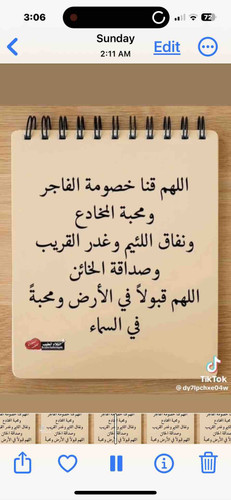 3:06
72
Sunday
2:11 AM
Edit
اللهم قنا خصومة الفاجر
ومحبة المخادع
ونفاق اللئيم وغدر القريب
وصداقة الخائن
اللهم قبولاً في الأرض ومحبةً
في السماء
TikTok
@dy7lpchxe04w